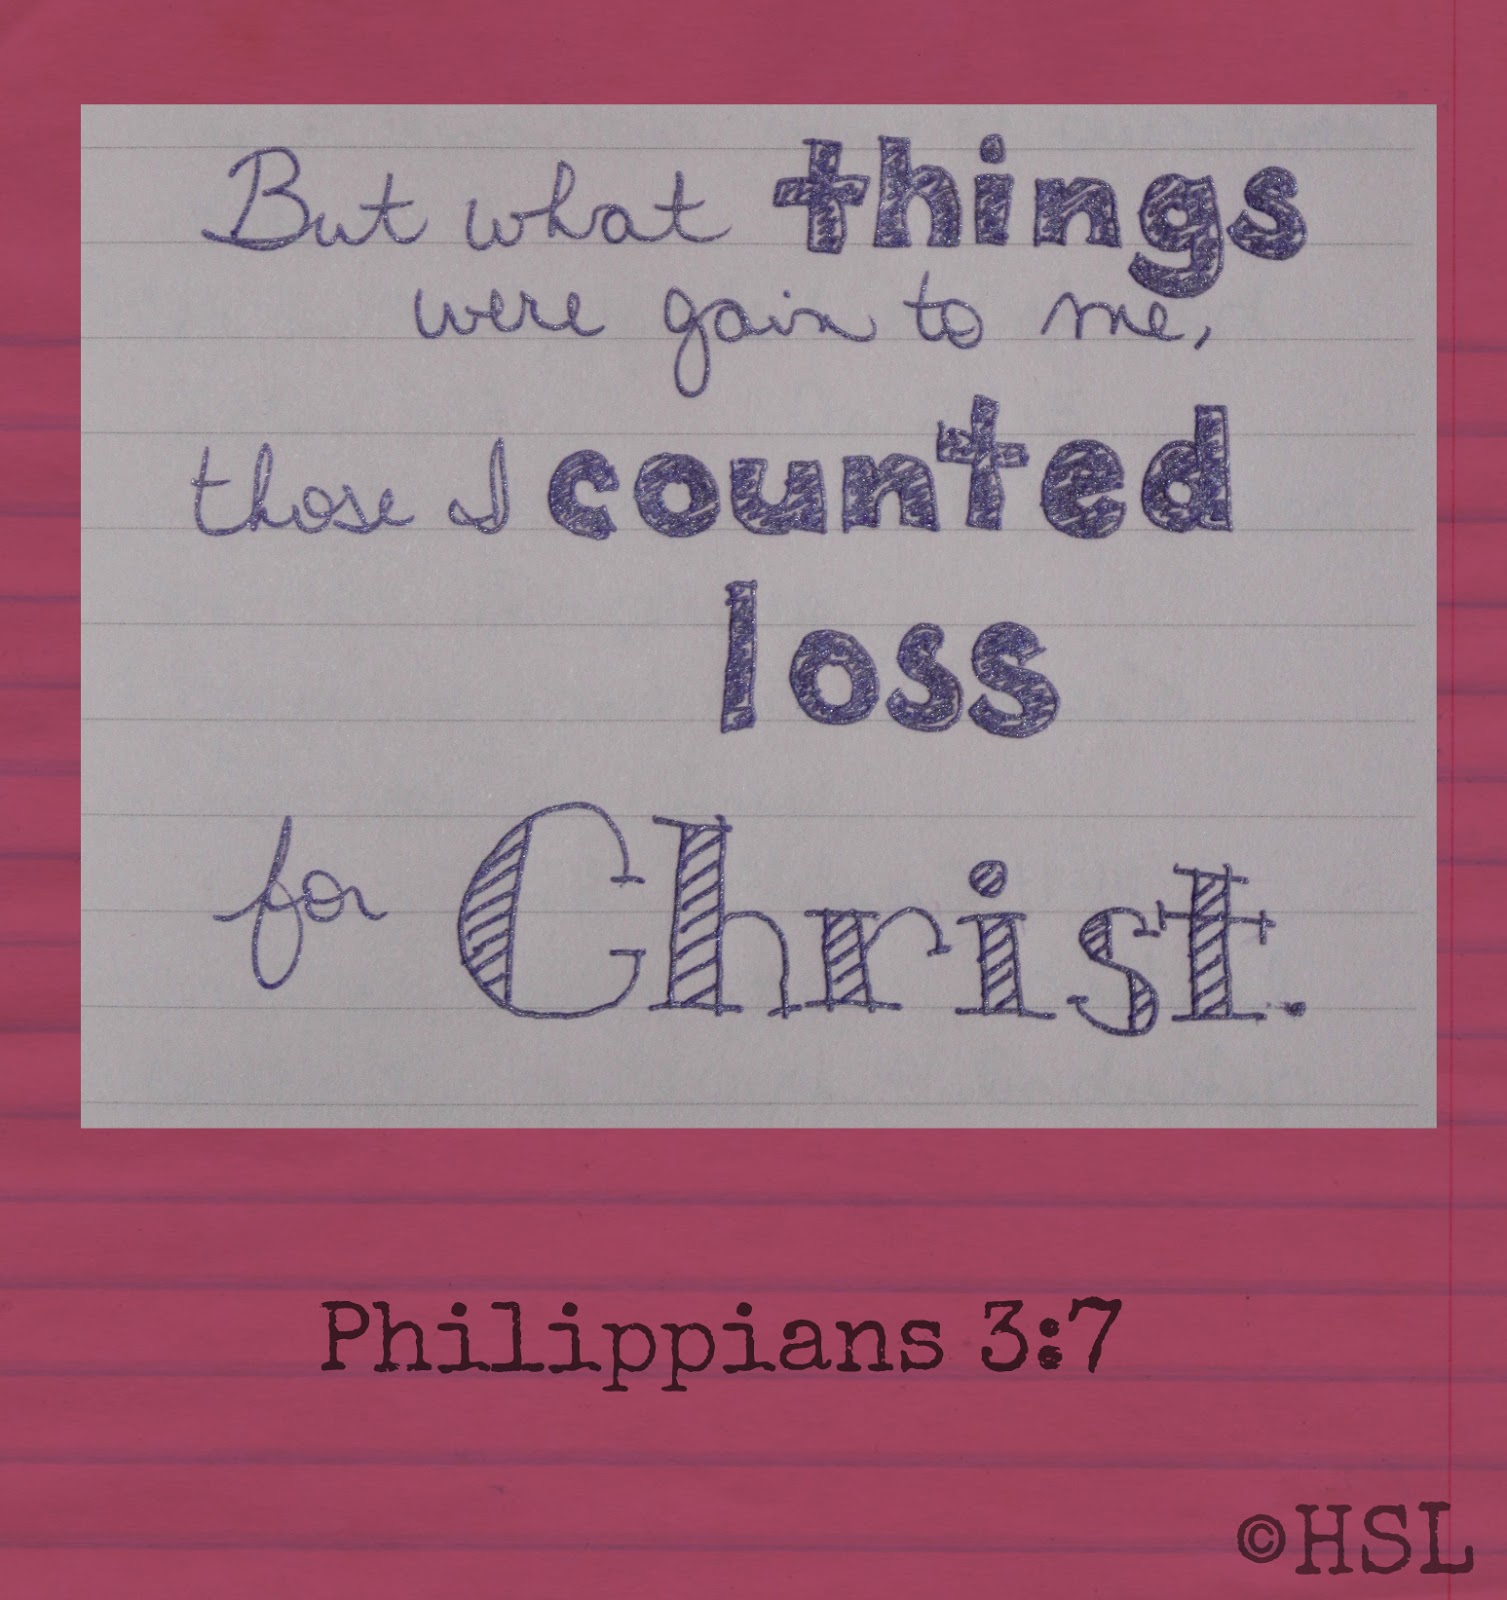 But what things
were gain to me,
those I counted
loss
for Christ.
Philippians 3:7
©HSL